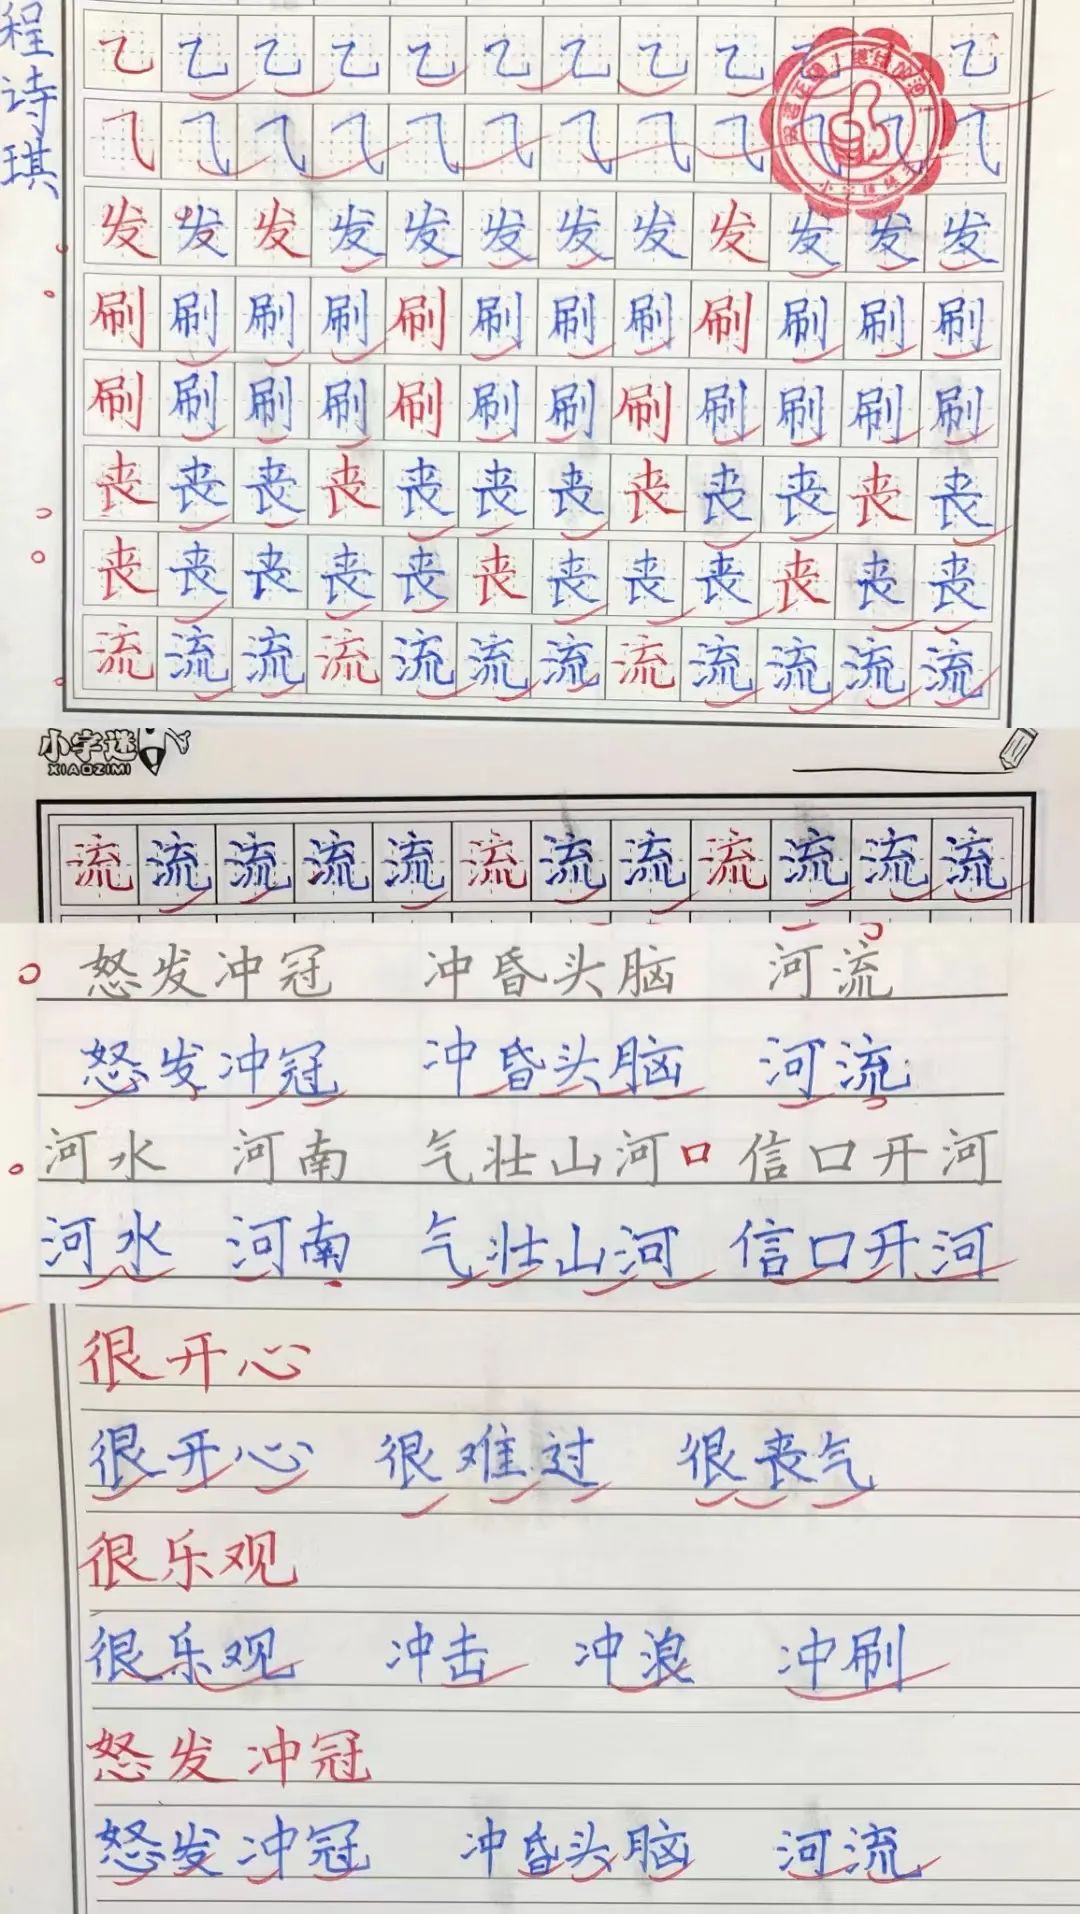 程诗琪
乙 乙 乙 乙 乙 乙 乙 乙 乙 乙 乙
⺄ ⺄ ⺄ ⺄ ⺄ ⺄ ⺄ ⺄ ⺄ ⺄ ⺄ ⺄
发 发 发 发 发 发 发 发 发 发 发 发
刷 刷 刷 刷 刷 刷 刷 刷 刷 刷 刷 刷
刷 刷 刷 刷 刷 刷 刷 刷 刷 刷 刷 刷
丧 丧 丧 丧 丧 丧 丧 丧 丧 丧 丧 丧
丧 丧 丧 丧 丧 丧 丧 丧 丧 丧 丧 丧
流 流 流 流 流 流 流 流 流 流 流 流
小字迷
XIAOZIMI
流 流 流 流 流 流 流 流 流 流 流 流
怒发冲冠 冲昏头脑 河流
怒发冲冠 冲昏头脑 河流
河水 河南 气壮山河 口 信口开河
河水 河南 气壮山河 信口开河
很开心
很开心 很难过 很丧气
很乐观
很乐观 冲击 冲浪 冲刷
怒发冲冠
怒发冲冠 冲昏头脑 河流